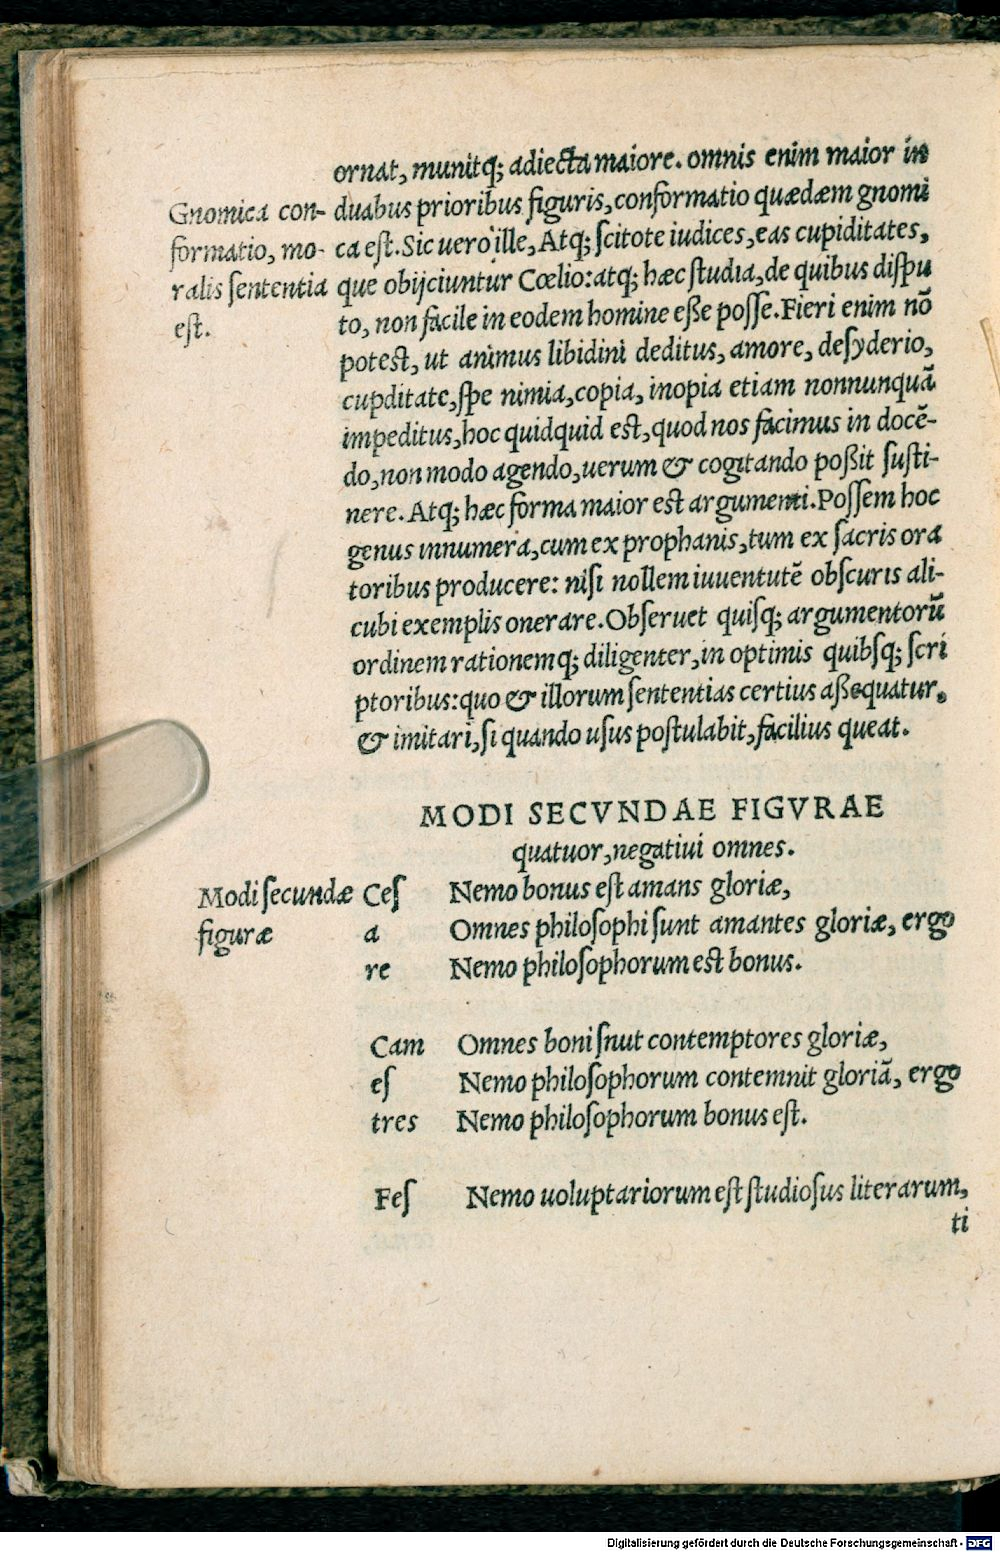 ornat, munitq; adiecta maiore. omnis enim maior in
Gnomica con- duabus prioribus figuris, conformatio quædæm gnomi
formatio, mo- ca est. Sic uerò ille, Atq; scitote iudices, eas cupiditates,
ralis sententia que obijciuntur Cœlio: atq; hæc studia, de quibus dispu
est. to, non facile in eodem homine eße posse. Fieri enim nō
potest, ut animus libidini deditus, amore, desyderio,
cupditate, spe nimia, copia, inopia etiam nonnunquā
impeditus, hoc quidquid est, quod nos facimus in docē-
do, non modo agendo, uerum & cogitando poßit susti-
nere. Atq; hæc forma maior est argumenti. Possem hoc
genus innumera, cum ex prophanis, tum ex sacris ora
toribus producere: nisi nollem iuuentutē obscuris ali-
cubi exemplis onerare. Obseruet quisq; argumentorū
ordinem rationemq; diligenter, in optimis quibsq; scri
ptoribus: quo & illorum sententias certius aßequatur,
& imitari, si quando usus postulabit, facilius queat.
MODI SECVNDAE FIGVRAE
quatuor, negatiui omnes.
Modi secundæ Ces Nemo bonus est amans gloriæ,
figuræ a Omnes philosophi sunt amantes gloriæ, ergo
re Nemo philosophorum est bonus.
Cam Omnes boni snut contemptores gloriæ,
es Nemo philosophorum contemnit gloriā, ergo
tres Nemo philosophorum bonus est.
Fes Nemo uoluptariorum est studiosus literarum,
ti
Digitalisierung gefördert durch die Deutsche Forschungsgemeinschaft - DFG